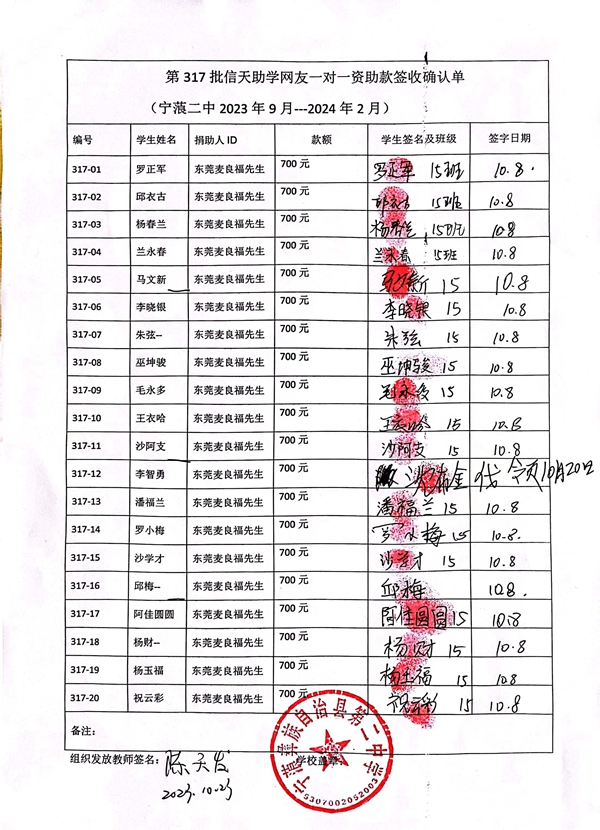 第 317 批信天助学网友一对一资助款签收确认单
（宁蒗二中 2023 年 9 月---2024 年 2 月）
编号 学生姓名 捐助人 ID 款额 学生签名及班级 签字日期
317-01 罗正军 东莞麦良福先生 700 元 罗正军 15班 10.8.
317-02 邱衣古 东莞麦良福先生 700 元 邱衣古 15班 10.8
317-03 杨春兰 东莞麦良福先生 700 元 杨春兰 15班 10.8
317-04 兰永春 东莞麦良福先生 700 元 兰永春 15班 10.8
317-05 马文新 东莞麦良福先生 700 元 马文新 15 10.8
317-06 李晓银 东莞麦良福先生 700 元 李晓银 15 10.8
317-07 朱弦-- 东莞麦良福先生 700 元 朱弦 15 10.8
317-08 巫坤骏 东莞麦良福先生 700 元 巫坤骏 15 10.8
317-09 毛永多 东莞麦良福先生 700 元 毛永多 15 10.8
317-10 王衣哈 东莞麦良福先生 700 元 王衣哈 15 10.8
317-11 沙阿支 东莞麦良福先生 700 元 沙阿支 15 10.8
317-12 李智勇 东莞麦良福先生 700 元 沙 金 代 领 10月20日
317-13 潘福兰 东莞麦良福先生 700 元 潘福兰 15 10.8
317-14 罗小梅 东莞麦良福先生 700 元 罗小梅 15 10.8.
317-15 沙学才 东莞麦良福先生 700 元 沙学才 15 10.8
317-16 邱梅-- 东莞麦良福先生 700 元 邱梅 10.8.
317-17 阿佳圆圆 东莞麦良福先生 700 元 阿佳圆圆 15 10.8
317-18 杨财-- 东莞麦良福先生 700 元 杨财 15 10.8
317-19 杨玉福 东莞麦良福先生 700 元 杨玉福 15 10.8
317-20 祝云彩 东莞麦良福先生 700 元 祝云彩 15 10.8
备注：
组织发放教师签名： 陈天发 学校盖章：
2023.10.23
宁蒗彝族自治县第二中学
5307002052003